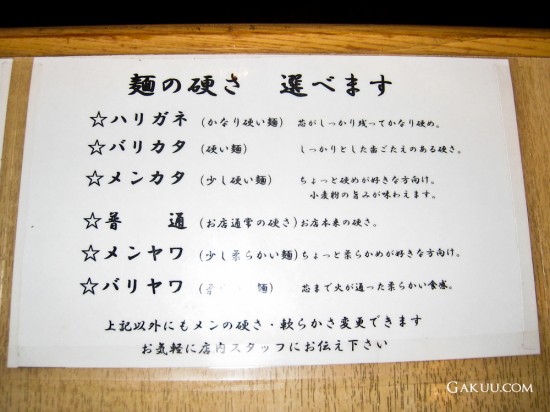 麺の硬さ 選べます
☆ハリガネ (かなり硬い麺) 芯がしっかり残ってかなり硬め。
☆バリカタ (硬い麺) しっかりとした歯ごたえのある硬さ。
☆メンカタ (少し硬い麺) ちょっと硬めが好きな方向け。
小麦粉の旨みが味わえます。
☆普 通 (お店通常の硬さ) お店本来の硬さ。
☆メンヤワ (少し柔らかい麺) ちょっと柔らかめが好きな方向け。
☆バリヤワ ( 麺) 芯まで火が通った柔らかい食感。
上記以外にもメンの硬さ・軟らかさ変更できます
お気軽に店内スタッフにお伝え下さい
GAKUU.COM